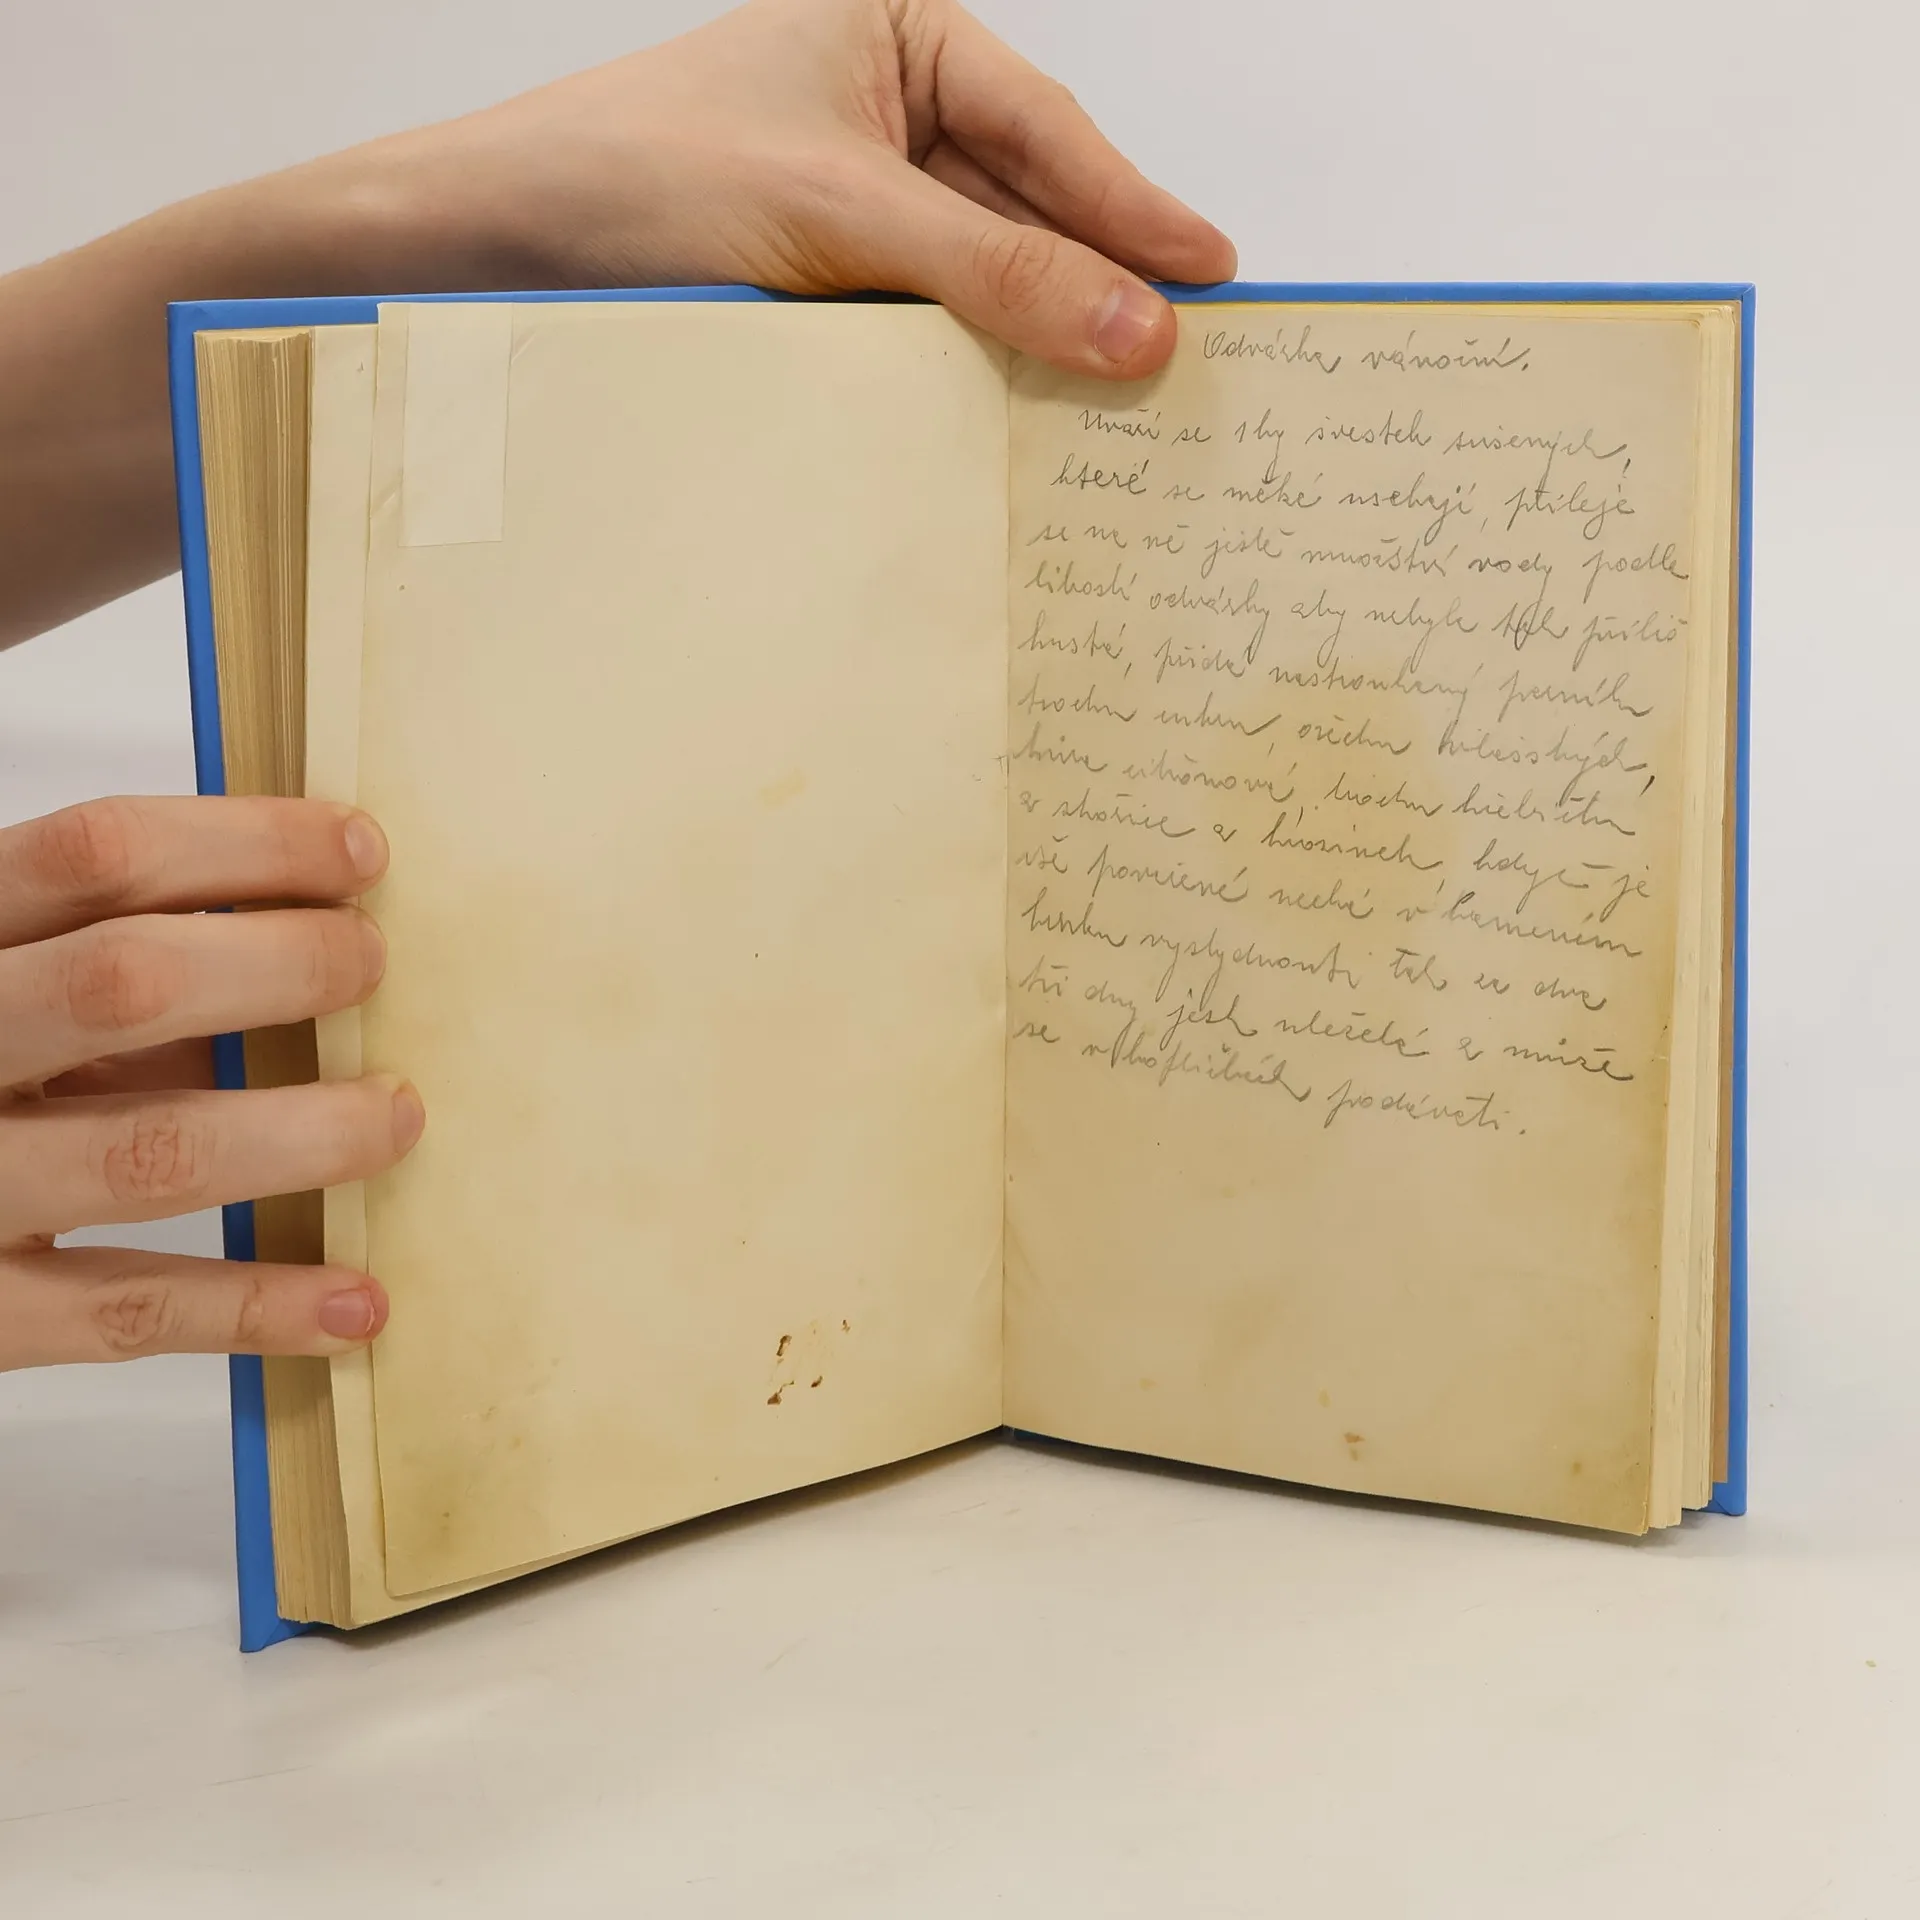 Odvárka vánoční.
Uvaří se 1 kg švestek sušených,
které se měké usekají, přileje
se na ně jisté množství vody podle
libosti odvárky aby nebyla tak příliš
hustá, přidá nastrouhaný perník
trochu cukru, ořechu vlašských,
kůra citrónová, trochu hřebíčku
a skořice a hrozinek, když je
vše povařené nechá v kameném
hrnku vystydnouti tak za dva
tři dny jest uležela a může
se v koflíčkách podávati.